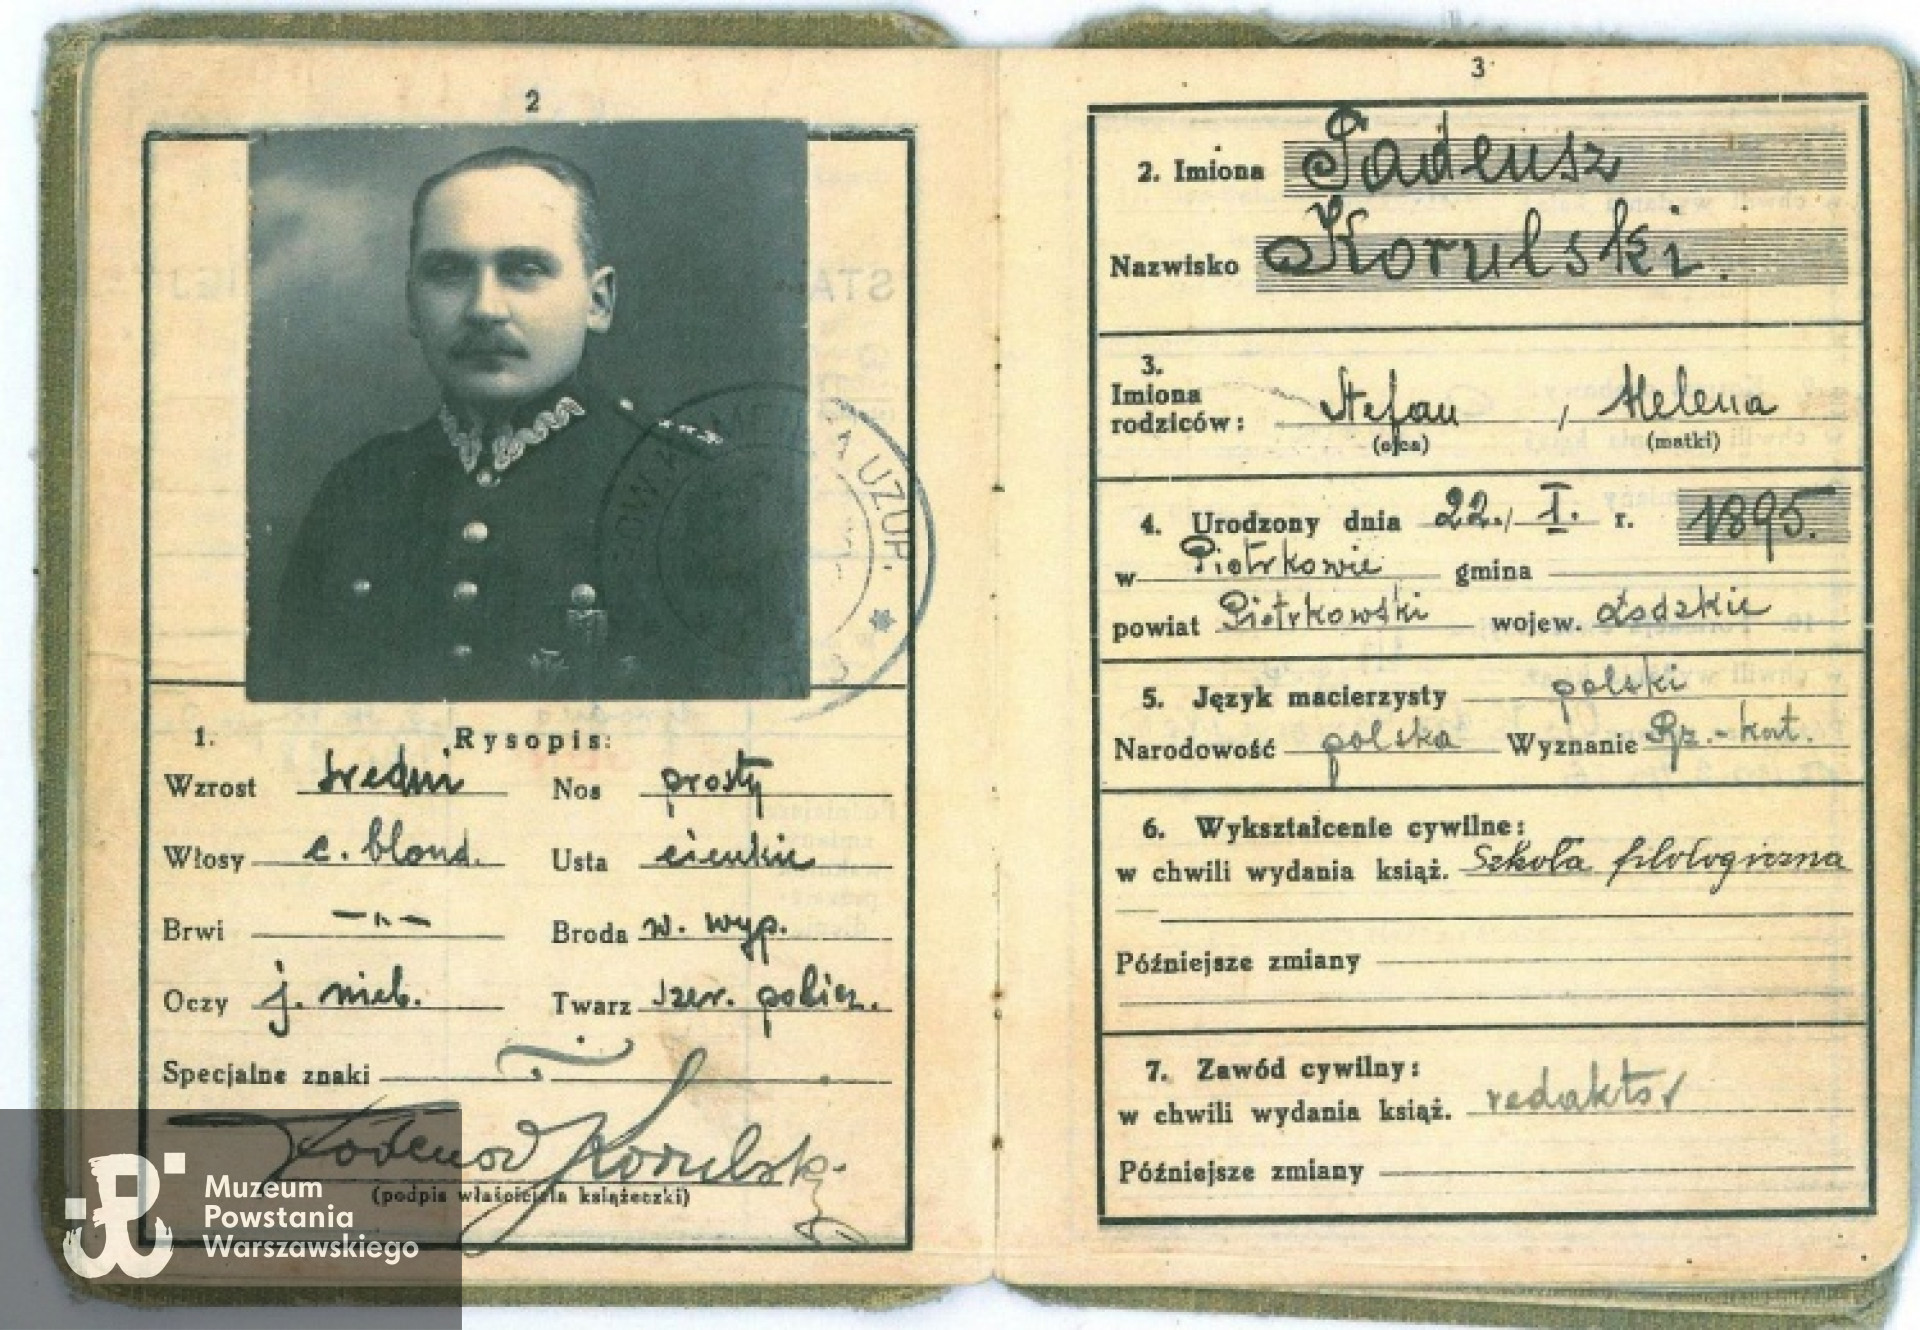 2
1. Rysopis:
Wzrost średni Nos prosty
Włosy c. blond. Usta cienkie
Brwi —„— Broda w. wyp.
Oczy j. nieb. Twarz szer. pobicz.
Specjalne znaki
Tadeusz Korulski
(podpis właściciela książeczki)
UZUP.
Muzeum
Powstania
Warszawskiego
3
2. Imiona Tadeusz
Nazwisko Korulski.
3.
Imiona
rodziców: Stefan, Helena
(ojca) (matki)
4. Urodzony dnia 22., I. r. 1895.
w Piotrkowie gmina
powiat Piotrkowski wojew. Łódzkie
5. Język macierzysty polski
Narodowość polska Wyznanie Rz.-kat.
6. Wykształcenie cywilne:
w chwili wydania książ. Szkoła filologiczna
Późniejsze zmiany
7. Zawód cywilny:
w chwili wydania książ. redaktor
Późniejsze zmiany